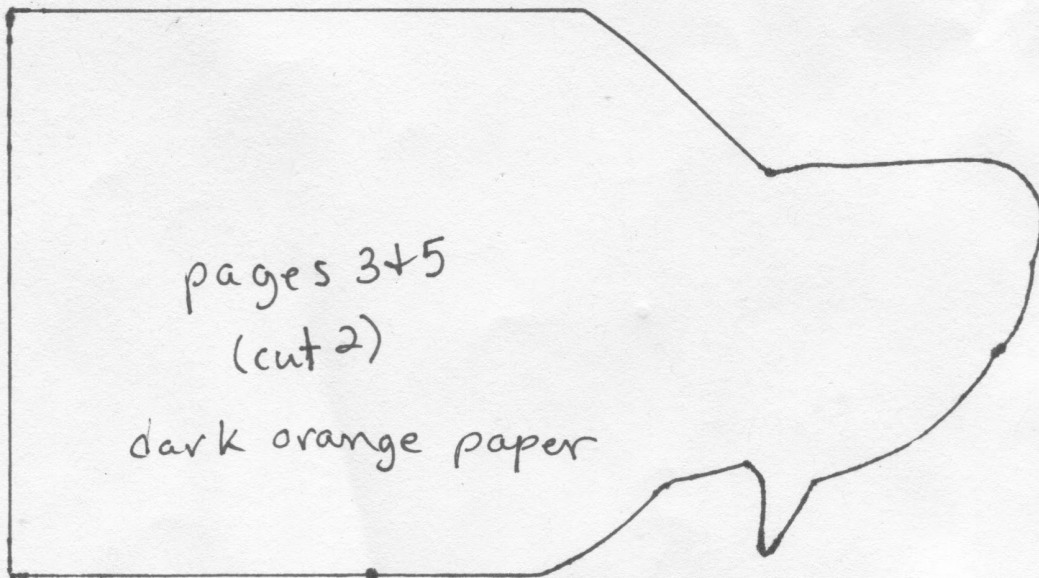 pages 3+5
(cut 2)
dark orange paper